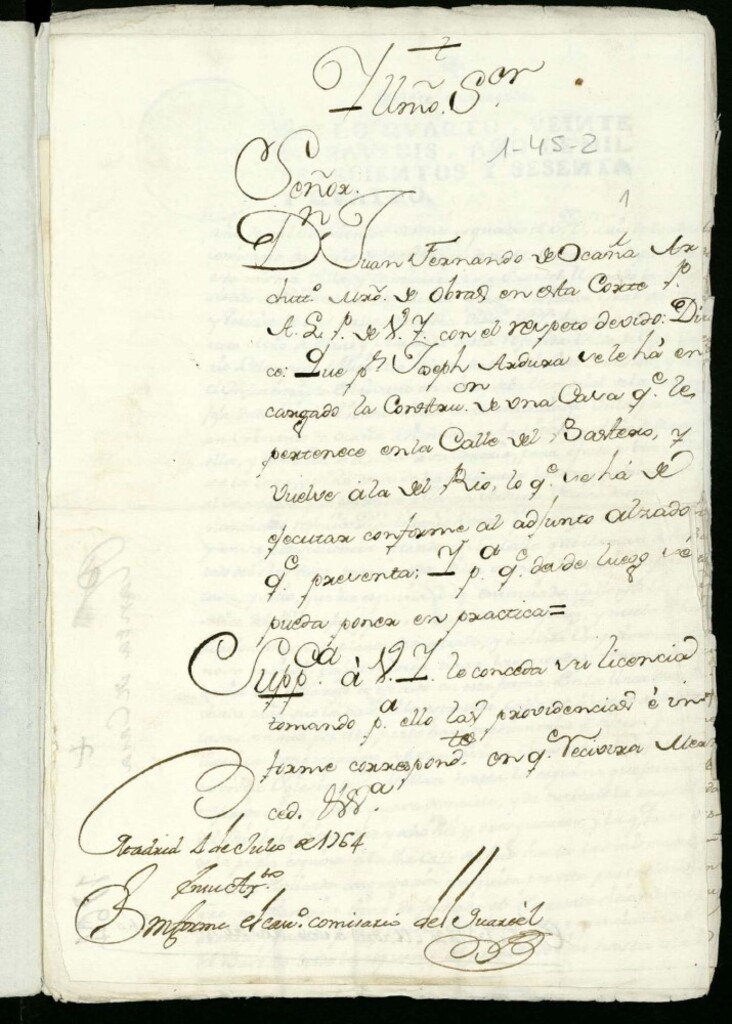 +
Yllmo. Sor.
1-45-2
Señor.
1
Dn Juan Fernando de Ocaña Ar
chitto. Mro. de Obras en esta Corte p.
A. L. P. de V. Y. con el respeto devido: Di
ce: Que pr. Joseph Ardura se le há en
cargado la Constru.on de una Casa q.e le
pertenece en la Calle del Bastero, y
vuelve á la del Rio, lo q.e se há de
ejecutar conforme al adjunto alzado
q.e presenta; Y p.a q.e desde luego se
pueda poner en practica=
Supp.ca á V. Y. le conceda su licencia
tomando p.a ello las providencias é in
forme correspond.te en q.e recivira Mer
ced. &&.a
Madrid 4 de Julio de 1764
Informe el cavo. comisario del Quartel